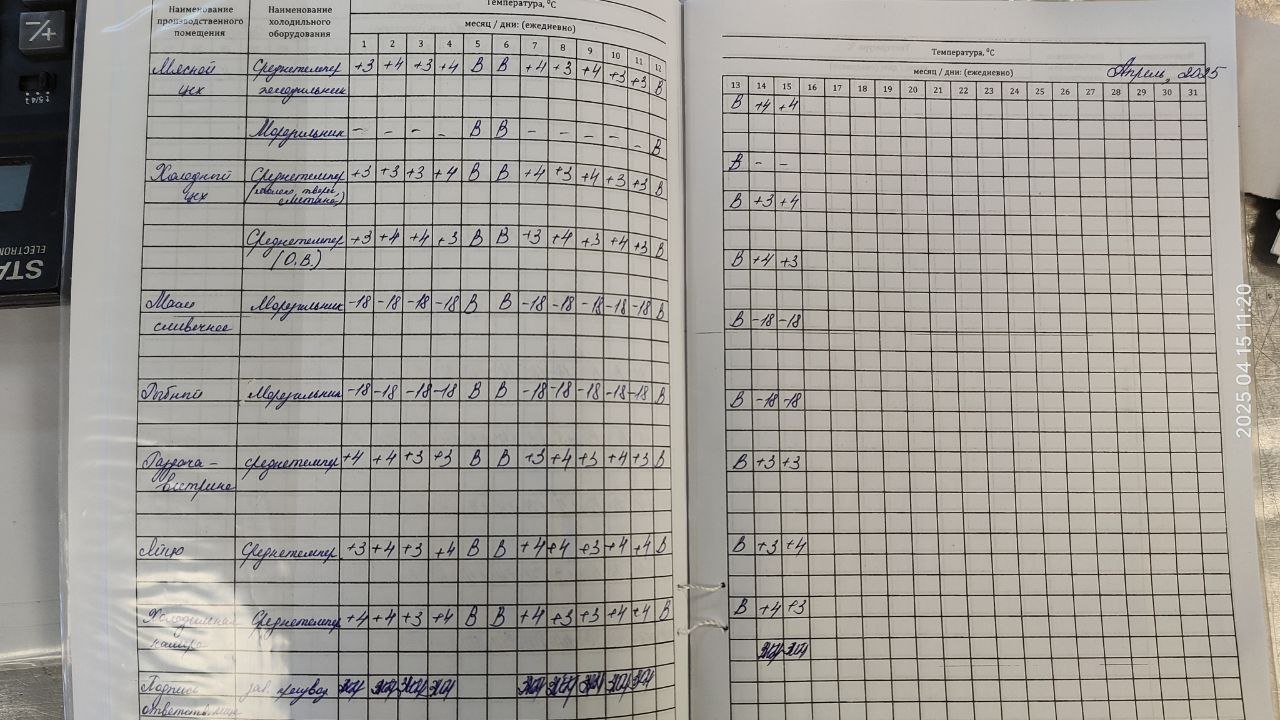 Наименование производственного помещения
Наименование холодильного оборудования
Температура, °C
месяц / дни: (ежедневно)
1 2 3 4 5 6 7 8 9 10 11 12
Мясной цех Среднетемпер холодильник +3 +4 +3 +4 В В +4 +3 +4 +3 +3 В
Морозильник - - - - В В - - - - - В
Холодный цех Среднетемпер (молоко, творог сметана) +3 +3 +3 +4 В В +4 +3 +4 +3 +3 В
Среднетемпер (О.В.) +3 +4 +4 +3 В В +3 +4 +3 +4 +3 В
Масло сливочное Морозильник -18 -18 -18 -18 В В -18 -18 -18 -18 -18 В
Рыбный Морозильник -18 -18 -18 -18 В В -18 -18 -18 -18 -18 В
Раздача - витрина среднетемпер +4 +4 +3 +3 В В +3 +4 +3 +4 +3 В
Яйцо Среднетемпер +3 +4 +3 +4 В В +4 +4 +3 +4 +4 В
Холодильная камера Среднетемпер +4 +4 +3 +4 В В +4 +3 +3 +4 +4 В
Подпись зав. производ
Температура, °C
месяц / дни: (ежедневно) Апрель, 2025
13 14 15 16 17 18 19 20 21 22 23 24 25 26 27 28 29 30 31
В +4 +4
В - -
В +3 +4
В +4 +3
В -18 -18
В -18 -18
В +3 +3
В +3 +4
В +4 +3
2025 04 15 11:20
+/-
5/4
STA
ELECTRON